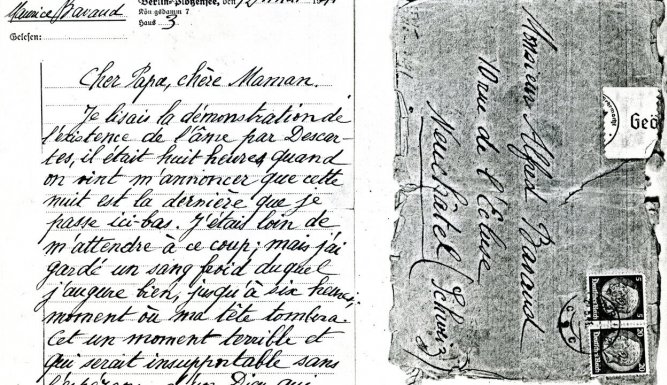 Maurice Bavaud
Berlin-Plötzensee, den 12
Königsdamm 7
Haus 3
Gelesen:
Cher Papa, chère Maman.
Je lisais la démonstration de
l'existence de l'âme par Descar-
tes, il était huit heures quand
on vint m'annoncer que cette
nuit est la dernière que je
passe ici-bas. J'étais loin de
m'attendre à ce coup; mais j'ai
gardé un sang froid duquel
j'augure bien, jusqu'à six heures,
moment où ma tête tombera.
Cet un moment terrible et
qui serait insupportable sans
Dieu qui
Monsieur Alfred Bavaud
10 rue de l'Ecluse
Neuchâtel (Schweiz)
Geö
5
Deutsches Reich
20
Deutsches Reich
20